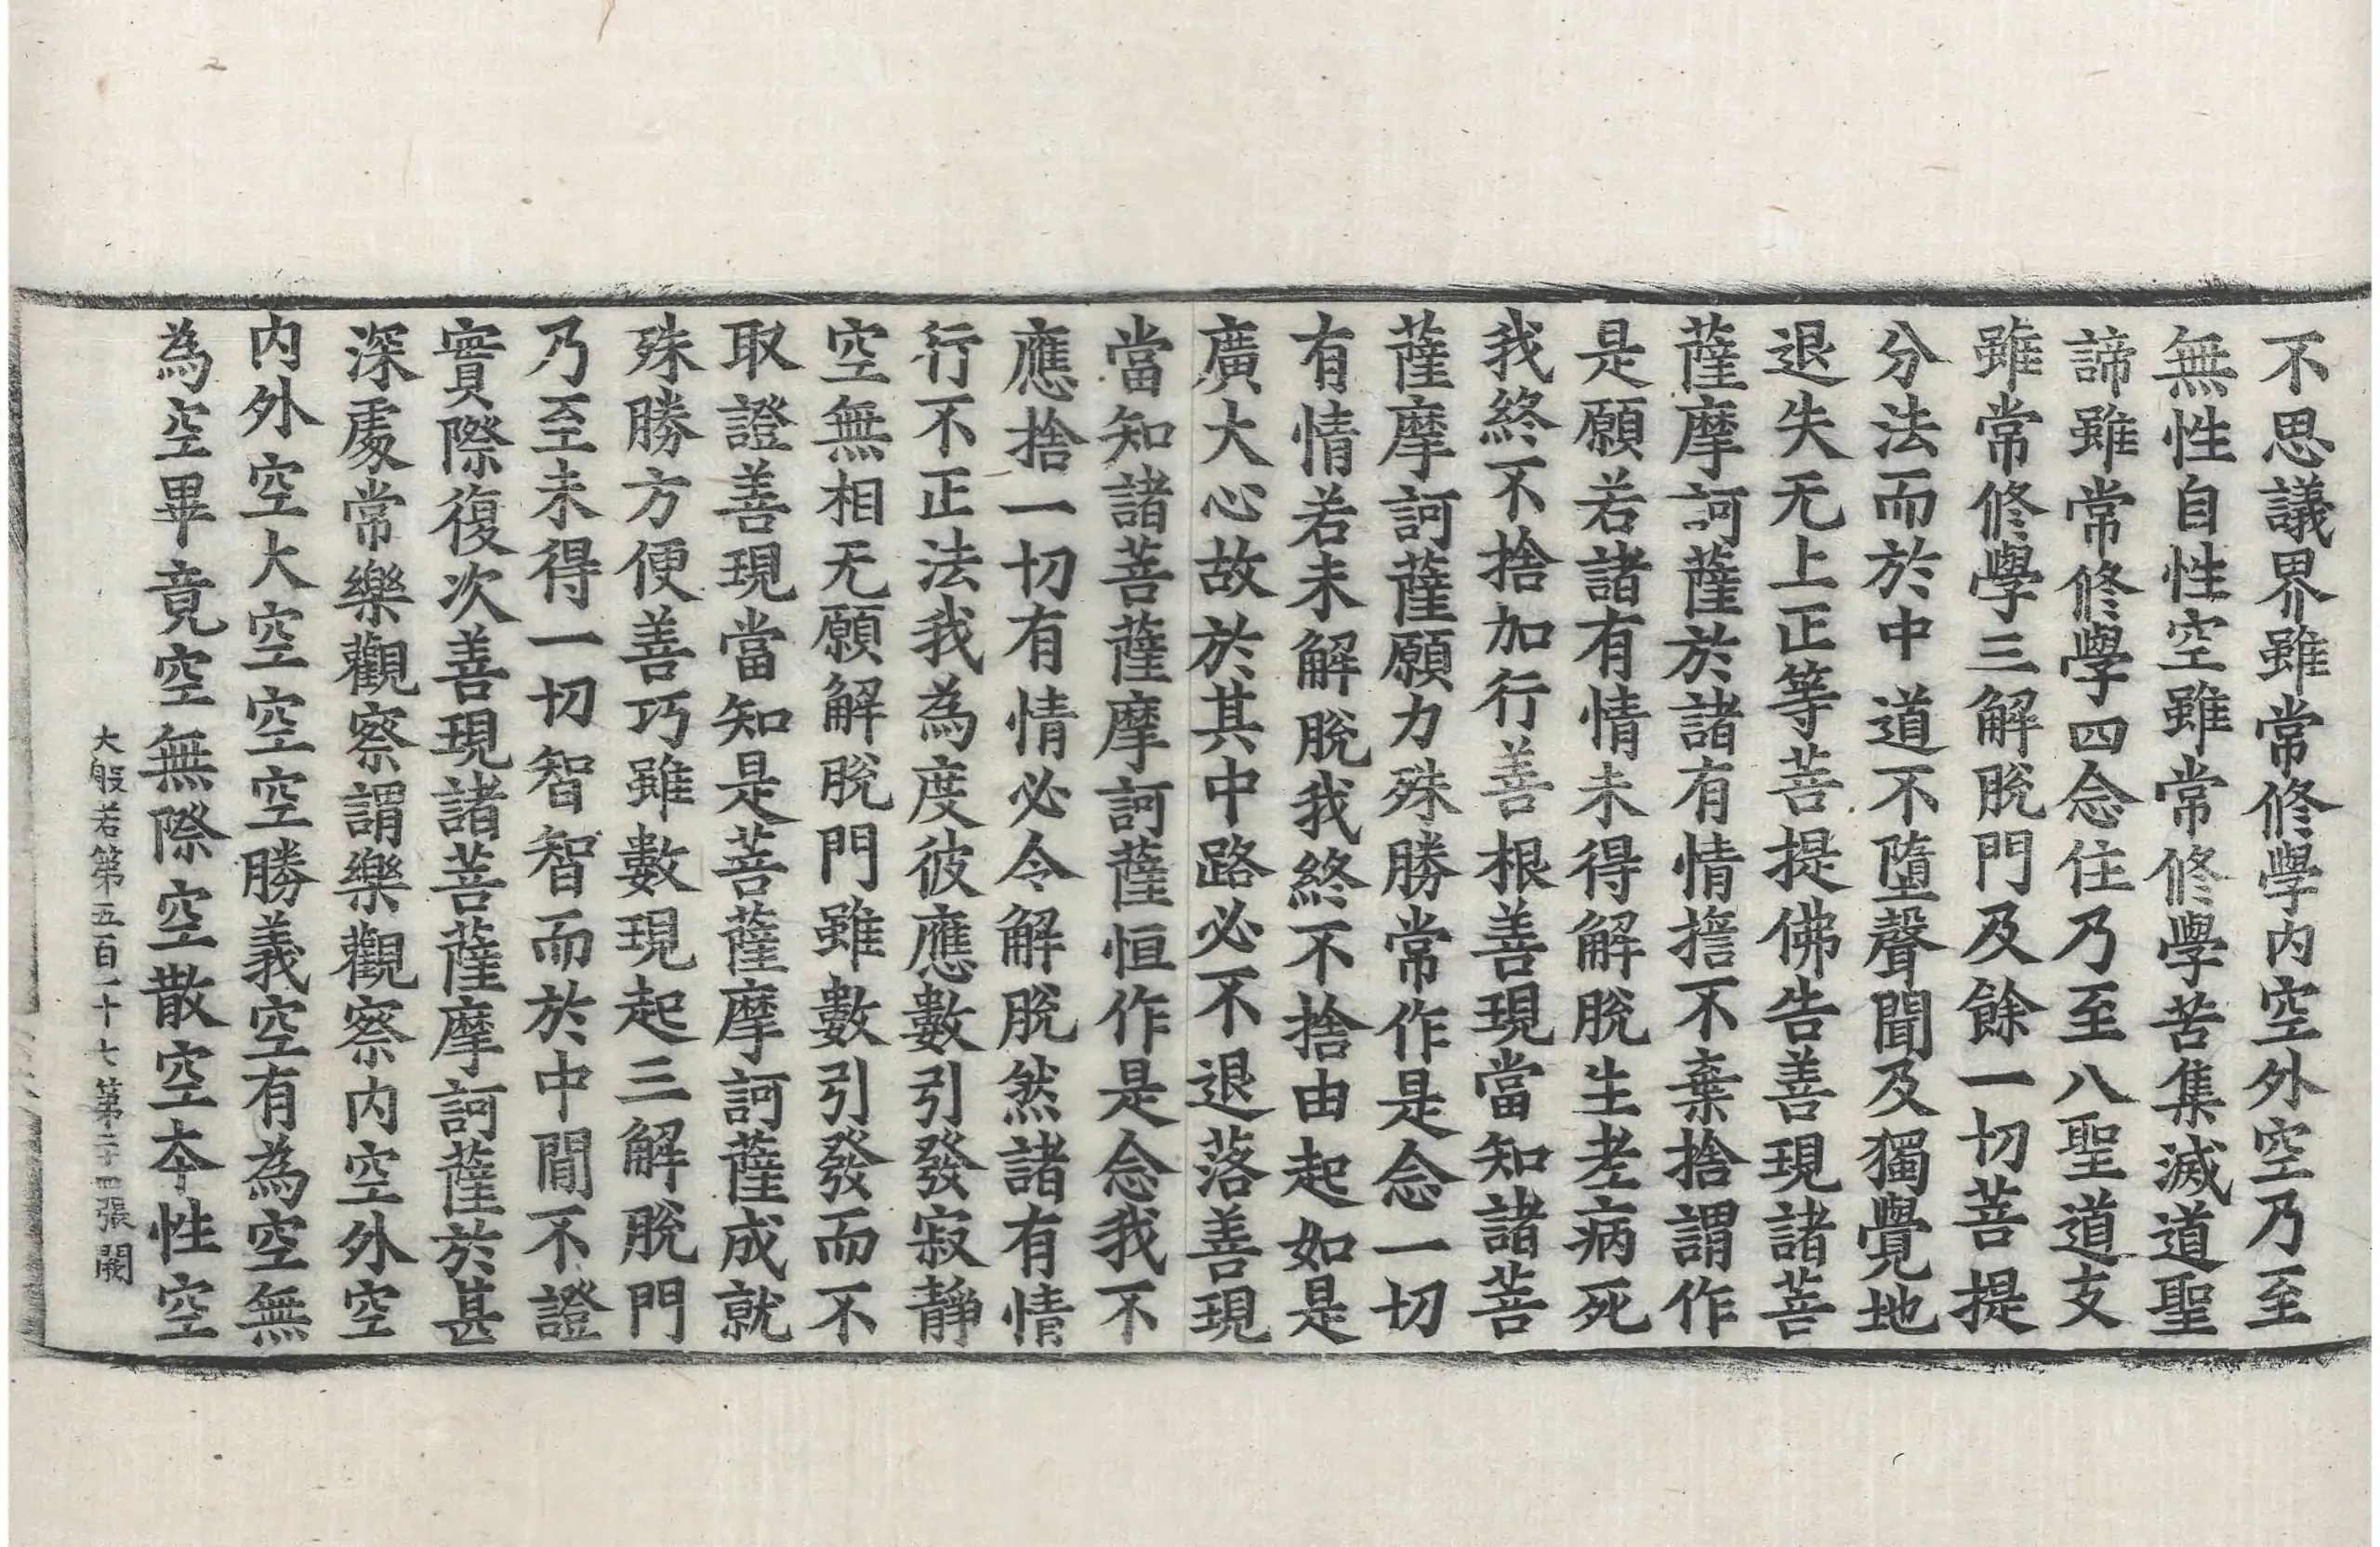 不思議界雖常修學内空外空乃至
無性自性空雖常修學苦集滅道聖
諦雖常修學四念住乃至八聖道支
雖常修學三解脫門及餘一切菩提
分法而於中道不墮聲聞及獨覺地
退失无上正等菩提佛告善現諸菩
薩摩訶薩於諸有情擔不棄捨謂作
是願若諸有情未得解脫生老病死
我終不捨加行善根善現當知諸菩
薩摩訶薩願力殊勝常作是念一切
有情若未解脫我終不捨由起如是
廣大心故於其中路必不退落善現
當知諸菩薩摩訶薩恒作是念我不
應捨一切有情必令解脫然諸有情
行不正法我為度彼應數引發寂靜
空無相无願解脫門雖數引發而不
取證善現當知是菩薩摩訶薩成就
殊勝方便善巧雖數現起三解脫門
乃至未得一切智智而於中閒不證
實際復次善現諸菩薩摩訶薩於甚
深處常樂觀察謂樂觀察内空外空
内外空大空空空勝義空有為空無
為空畢竟空無際空散空本性空
大般若第五百一十七第二十四張 闕